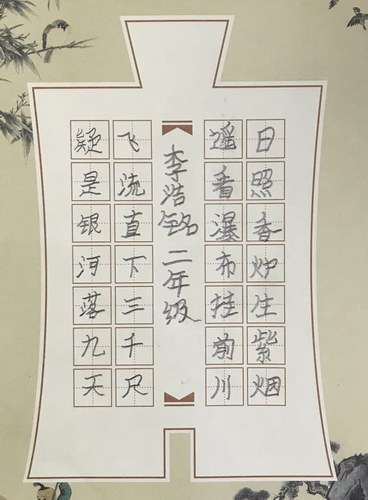 日照香炉生紫烟
遥看瀑布挂前川
李浩铭 二年级
飞流直下三千尺
疑是银河落九天